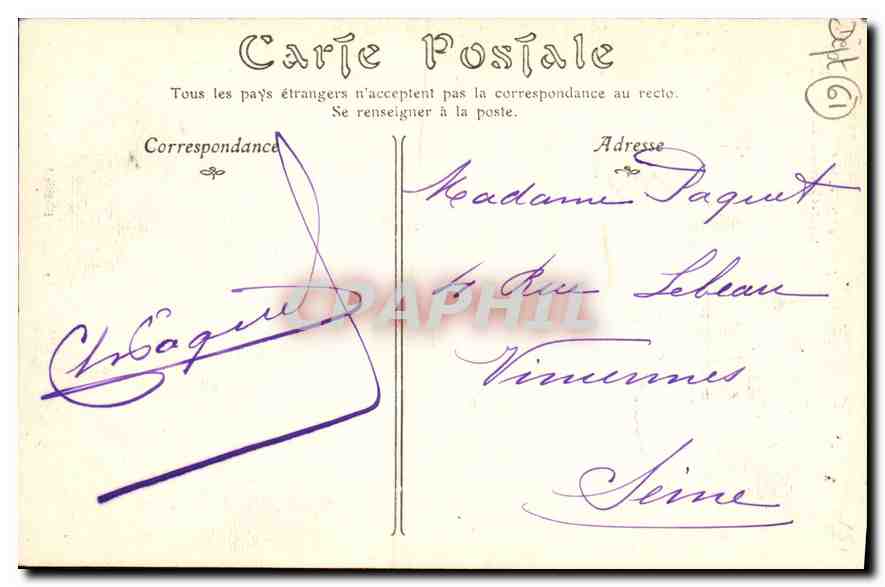 Carte Postale
Tous les pays étrangers n'acceptent pas la correspondance au recto.
Se renseigner à la poste.
Dépt
61
Correspondance
Adresse
Ch Paquet
Madame Paquet
Rue Lebeau
Vincennes
Seine
CPAPHIL